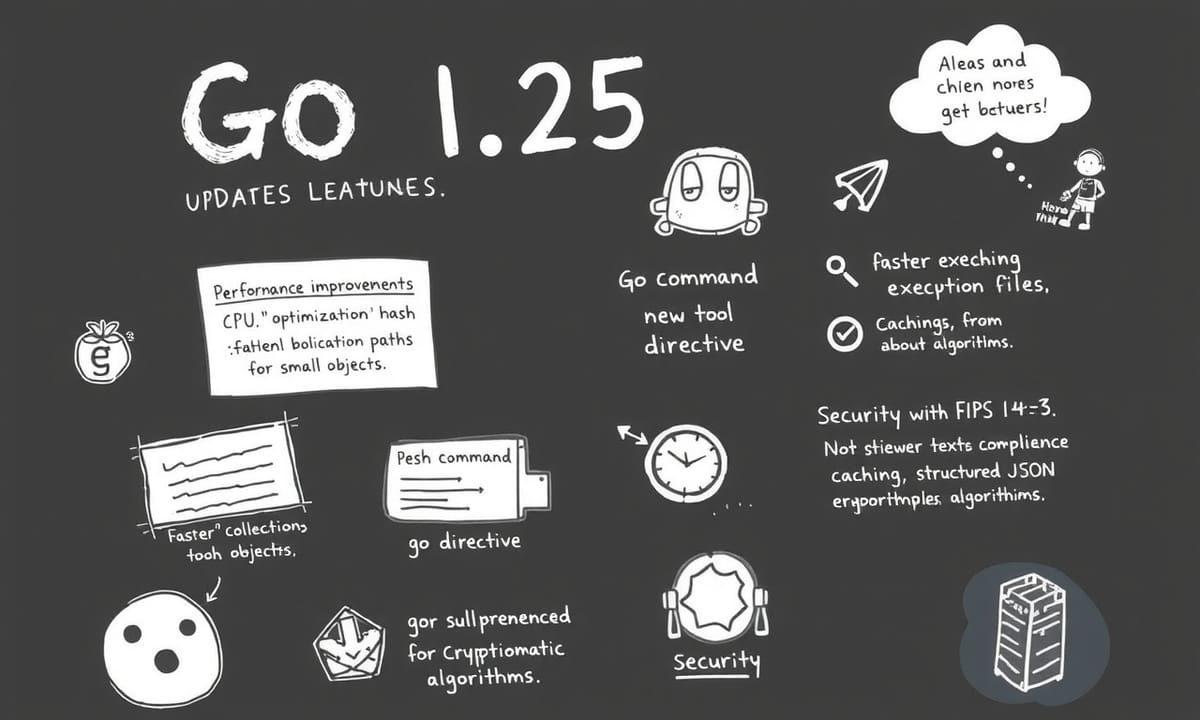 Go 1.25
UPDATES LEATUNES.
Aleas and
chien nores
get bctuers!
Perfornance improvenents
CPU." optimization' hash
:fatlenl bolication paths
for small objects.
g
Go command
new tool
directive
faster exeching
execption files,
Cachings, from
about algoritlms.
Security with FIPS 14-3.
Not stiewer texts complience
caching, structured JSON
algorithims.
Faster" collections
tooh objects.
Pesh command
go directive
gor sullprenenced
for Cryptiomatic
algorithms.
Security